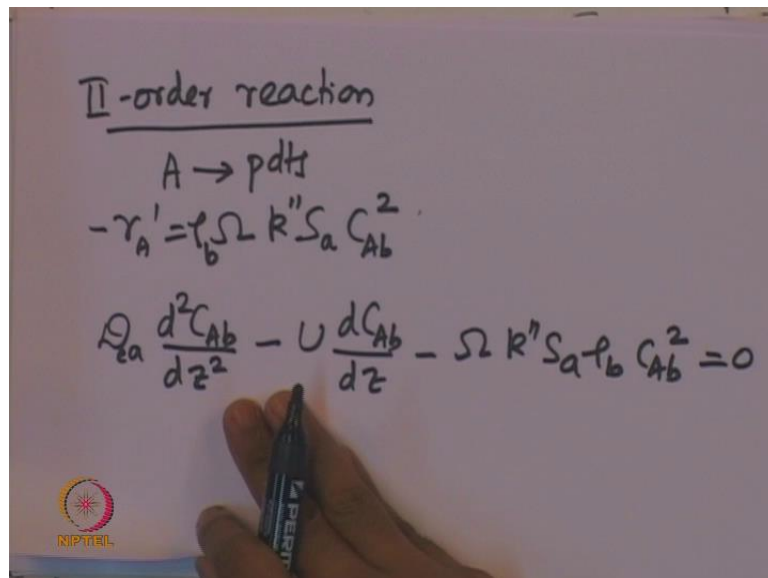 II-order reaction
A → pdts
-r_A' = ρ_b Ω k'' S_a C_Ab^2
D_za d^2C_Ab/dz^2 - U dC_Ab/dz - Ω k'' S_a ρ_b C_Ab^2 = 0
NPTEL